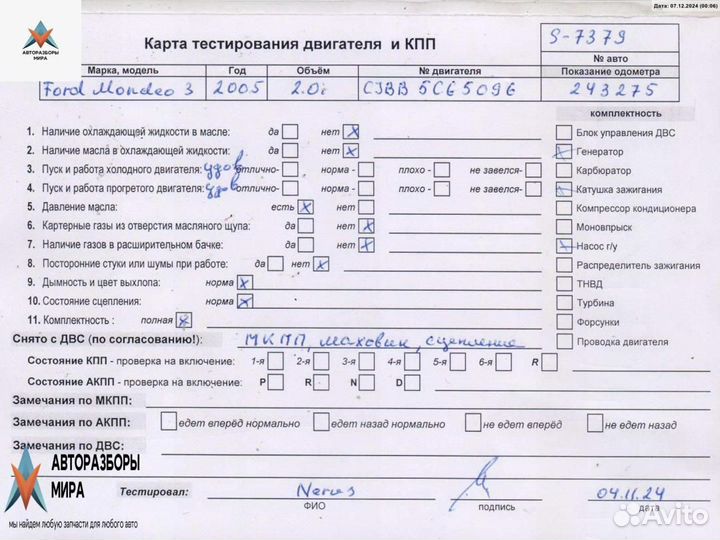 Дата: 07.12.2024 (00:06)
АВТОРАЗБОРЫ
МИРА
Карта тестирования двигателя и КПП
S-7379
№ авто
Марка, модель Год Объём № двигателя Показание одометра
Ford Mondeo 3 2005 2.0i CJBB 5C65096 243275
комплектность
1. Наличие охлаждающей жидкости в масле: да нет X
Блок управления ДВС
2. Наличие масла в охлаждающей жидкости: да нет X
Генератор
3. Пуск и работа холодного двигателя: удов отлично- норма - плохо - не завелся-
Карбюратор
4. Пуск и работа прогретого двигателя: удов отлично- норма - плохо - не завелся-
Катушка зажигания
5. Давление масла: есть X нет
Компрессор кондиционера
6. Картерные газы из отверстия масляного щупа: да нет X
Моновпрыск
7. Наличие газов в расширительном бачке: да нет X
Насос г/у
8. Посторонние стуки или шумы при работе: да нет X
Распределитель зажигания
9. Дымность и цвет выхлопа: норма X
ТНВД
10. Состояние сцепления: норма X
Турбина
11. Комплектность : полная X
Форсунки
Снято с ДВС (по согласованию!): МКПП, маховик, сцепление
Проводка двигателя
Состояние КПП - проверка на включение: 1-я 2-я 3-я 4-я 5-я 6-я R
Состояние АКПП - проверка на включение: P R N D
Замечания по МКПП:
Замечания по АКПП: едет вперёд нормально едет назад нормально не едет вперёд не едет назад
Замечания по ДВС:
АВТОРАЗБОРЫ
МИРА
Тестировал: 04.11.24
ФИО подпись дата
мы найдем любую запчасти для любого авто
Avito